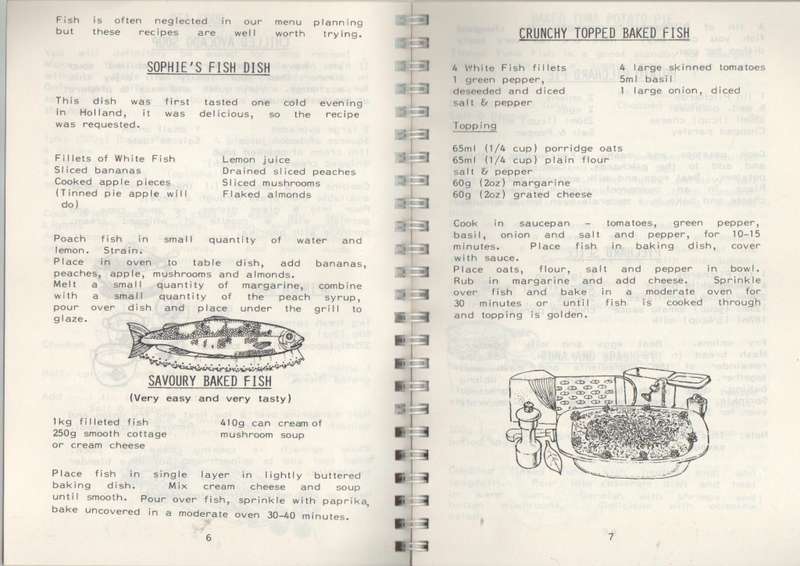 Fish is often neglected in our menu planning
but these recipes are well worth trying.
SOPHIE'S FISH DISH
This dish was first tasted one cold evening
in Holland, it was delicious, so the recipe
was requested.
Fillets of White Fish
Sliced bananas
Cooked apple pieces
(Tinned pie apple will
do)
Lemon juice
Drained sliced peaches
Sliced mushrooms
Flaked almonds
Poach fish in small quantity of water and
lemon. Strain.
Place in oven to table dish, add bananas,
peaches, apple, mushrooms and almonds.
Melt a small quantity of margarine, combine
with a small quantity of the peach syrup,
pour over dish and place under the grill to
glaze.
SAVOURY BAKED FISH
(Very easy and very tasty)
1kg filleted fish
250g smooth cottage
or cream cheese
410g can cream of
mushroom soup
Place fish in single layer in lightly buttered
baking dish. Mix cream cheese and soup
until smooth. Pour over fish, sprinkle with paprika,
bake uncovered in a moderate oven 30-40 minutes.
6
CRUNCHY TOPPED BAKED FISH
4 White Fish fillets
1 green pepper,
deseeded and diced
salt & pepper
4 large skinned tomatoes
5ml basil
1 large onion, diced
Topping
65ml (1/4 cup) porridge oats
65ml (1/4 cup) plain flour
salt & pepper
60g (2oz) margarine
60g (2oz) grated cheese
Cook in saucepan - tomatoes, green pepper,
basil, onion and salt and pepper, for 10-15
minutes. Place fish in baking dish, cover
with sauce.
Place oats, flour, salt and pepper in bowl.
Rub in margarine and add cheese. Sprinkle
over fish and bake in a moderate oven for
30 minutes or until fish is cooked through
and topping is golden.
7